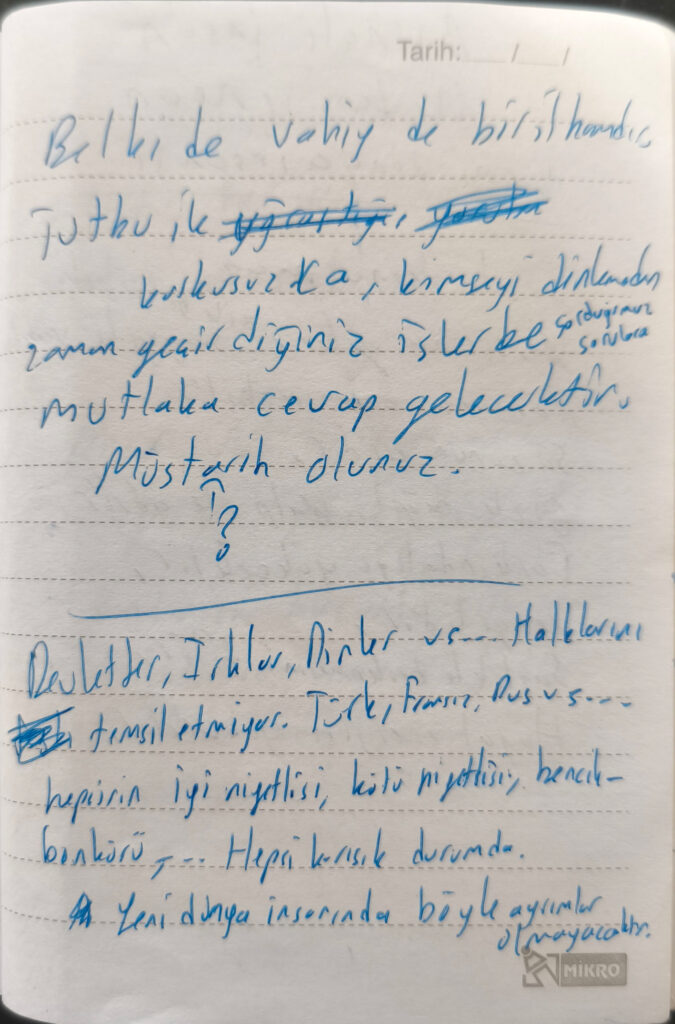 Tarih: / /
Belki de vahiy de bir ilhamdır.
Tutku ile
kuşkusuzca, kimseyi dinlemeden
zaman geçirdiğiniz işlerde sorduğunuz
sorulara
mutlaka cevap gelecektir.
Müsterih olunuz.
?
Devletler, Irklar, Dinler vs... Halklarını
temsil etmiyor. Türk, Fransız, Rus vs....
hepsinin iyi niyetlisi, kötü niyetlisi, bencili-
bonkörü, ... Hepsi karışık durumda.
Yeni dünya insanında böyle ayrımlar
olmayacaktır.
MİKRO